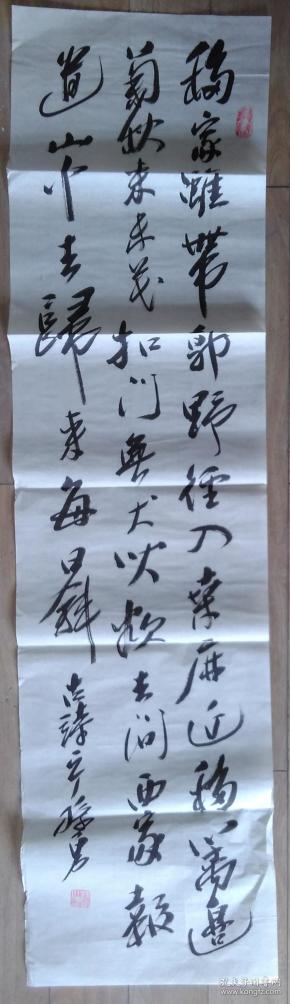 移家雖帶郭野徑入桑麻近種籬邊
菊秋來未花扣門無犬吠欲去問西家報
道山中去歸來每日斜
古詩
孔夫子旧书网
www.kongfz.com